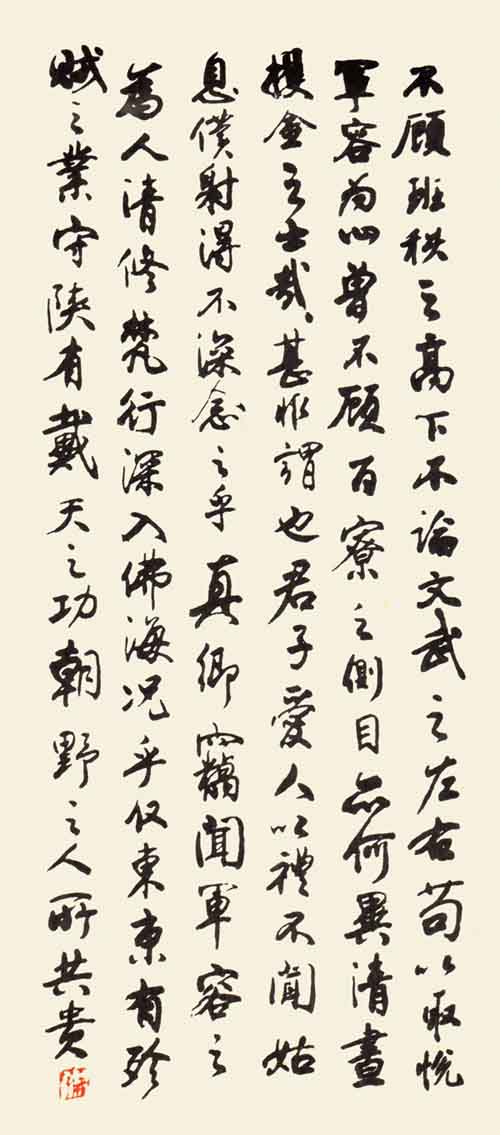 不顾班秩之高下不論文武之左右苟以取悦
軍容為心曾不顾百寮之側目亦何異清晝
攫金之士哉甚非謂也君子愛人以禮不聞姑
息僕射得不深念之乎真卿竊聞軍容之
為人清修梵行深入佛海况乎收東京有殄
賊之業守陝有戴天之功朝野之人所共貴